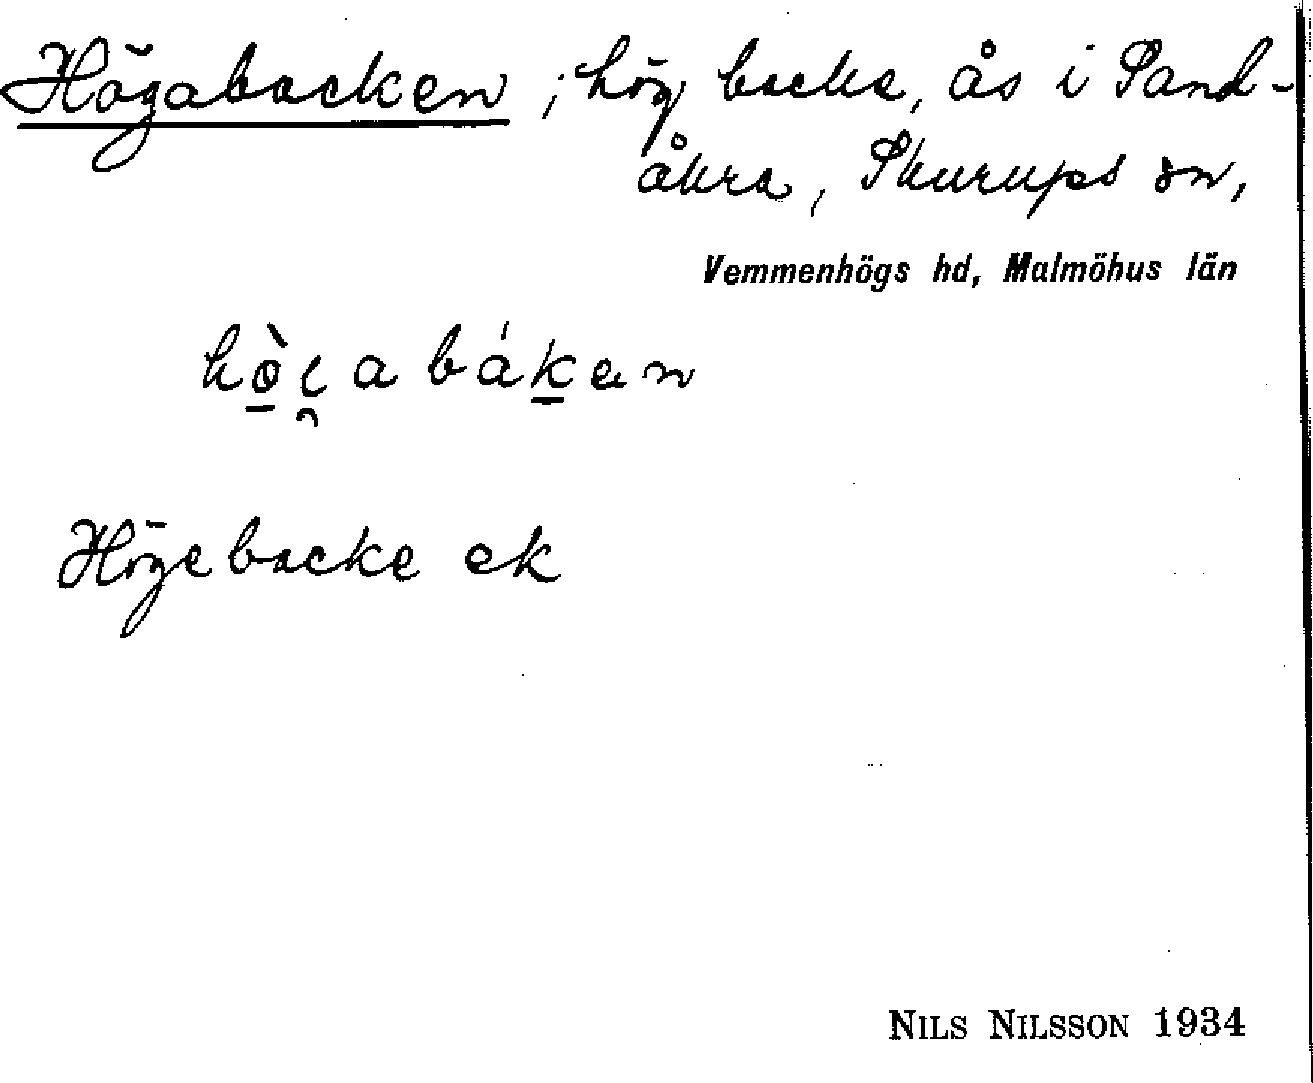 Högabacken ; hög backe, ås i Sand-
åkra, Skurups sn,
Vemmenhögs hd, Malmöhus län
Högebacke ek
NILS NILSSON 1934